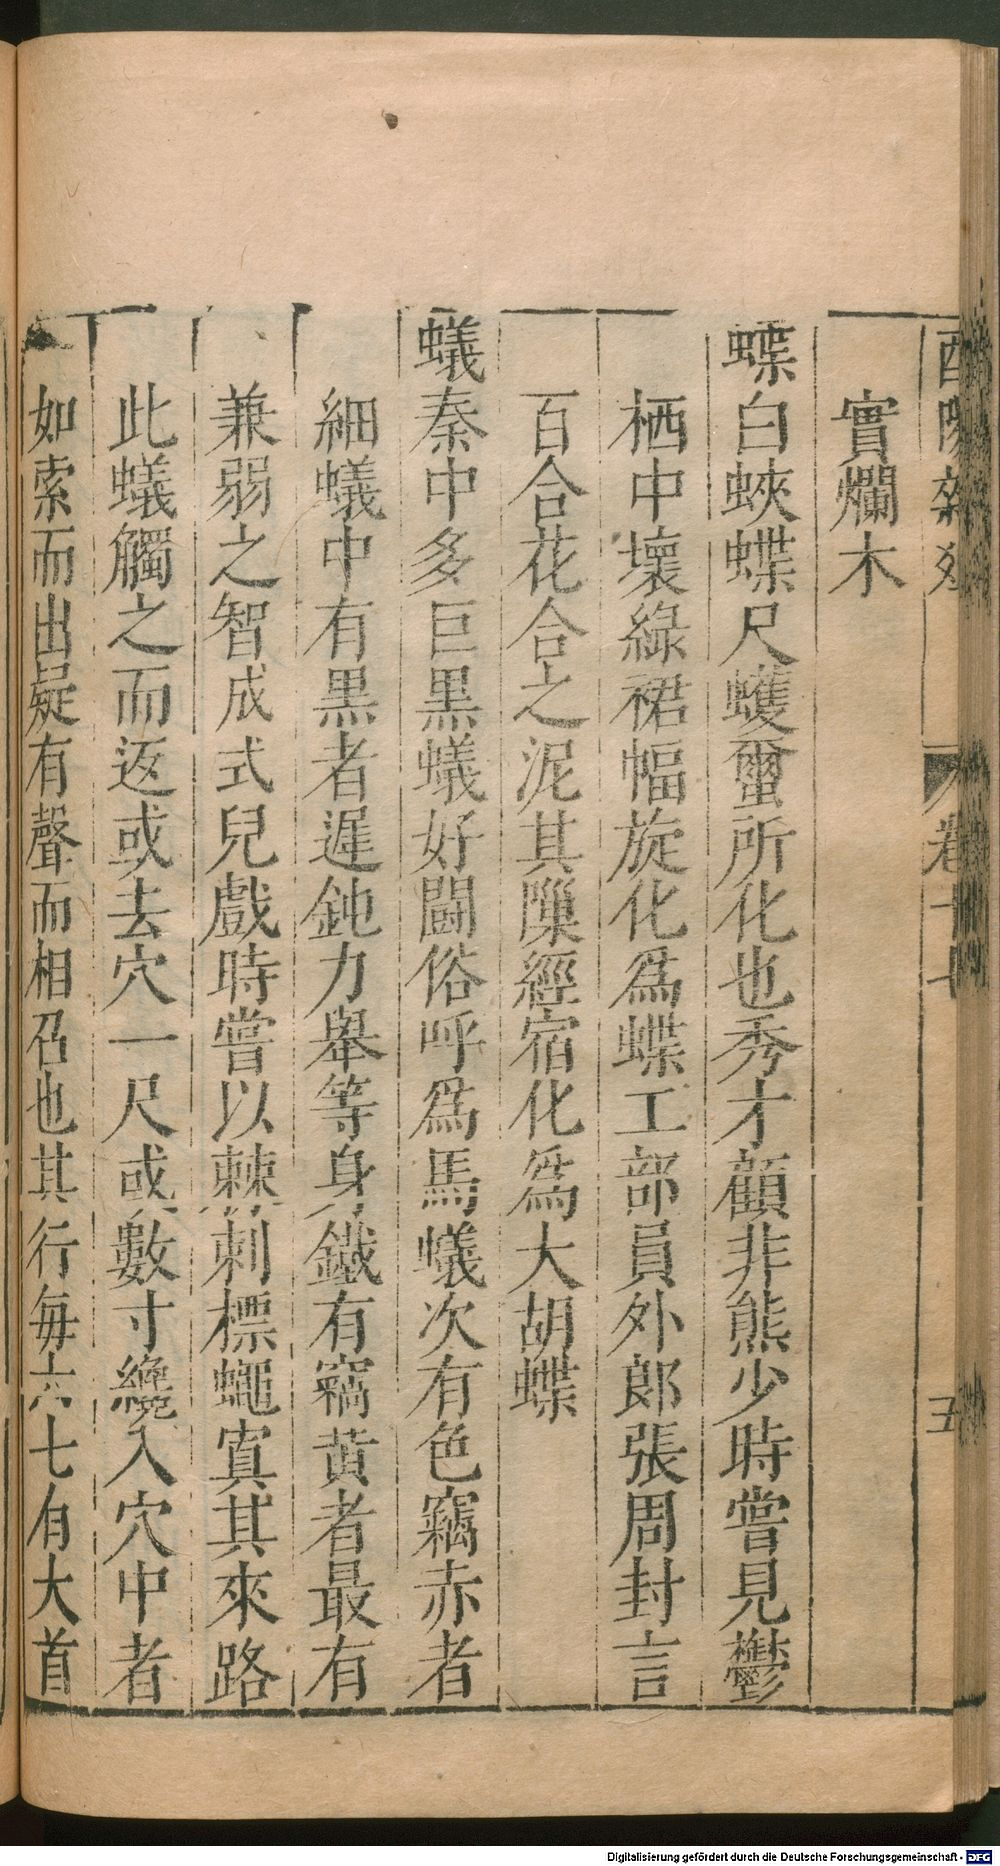 酉陽雜
卷十七
五
實爛木
蝶白蛺蝶尺蠖蠒所化也秀才顧非熊少時嘗見鬱
栖中壞綠裙幅旋化爲蝶工部員外郎張周封言
百合花合之泥其隟經宿化爲大胡蝶
蟻秦中多巨黑蟻好鬬俗呼爲馬蟻次有色竊赤者
細蟻中有黒者遲鈍力舉等身鐵有竊黄者最有
兼弱之智成式兒戲時嘗以棘刺標蠅寘其來路
此蟻觸之而返或去穴一尺或數寸纔入穴中者
如索而出疑有聲而相召也其行每六七有大首
Digitalisierung gefördert durch die Deutsche Forschungsgemeinschaft - DFG